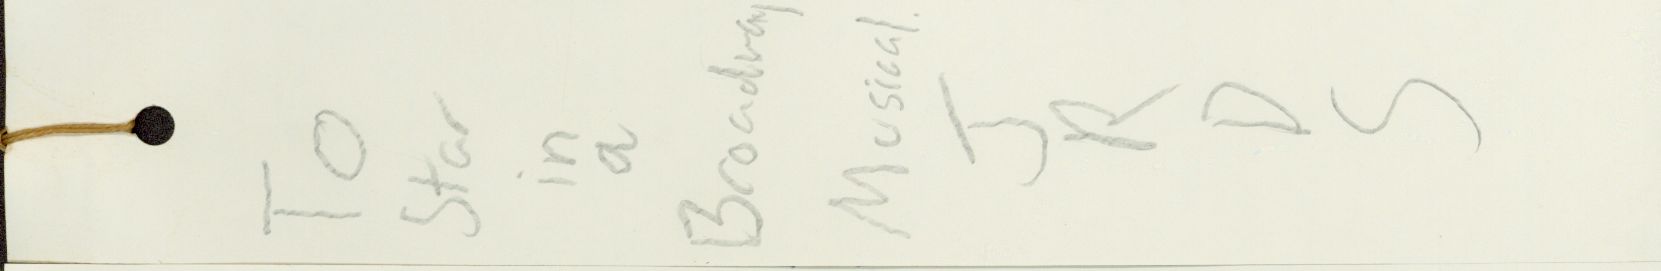 TO
Star
in
a
Broadway
Musical.
J
R
D
S